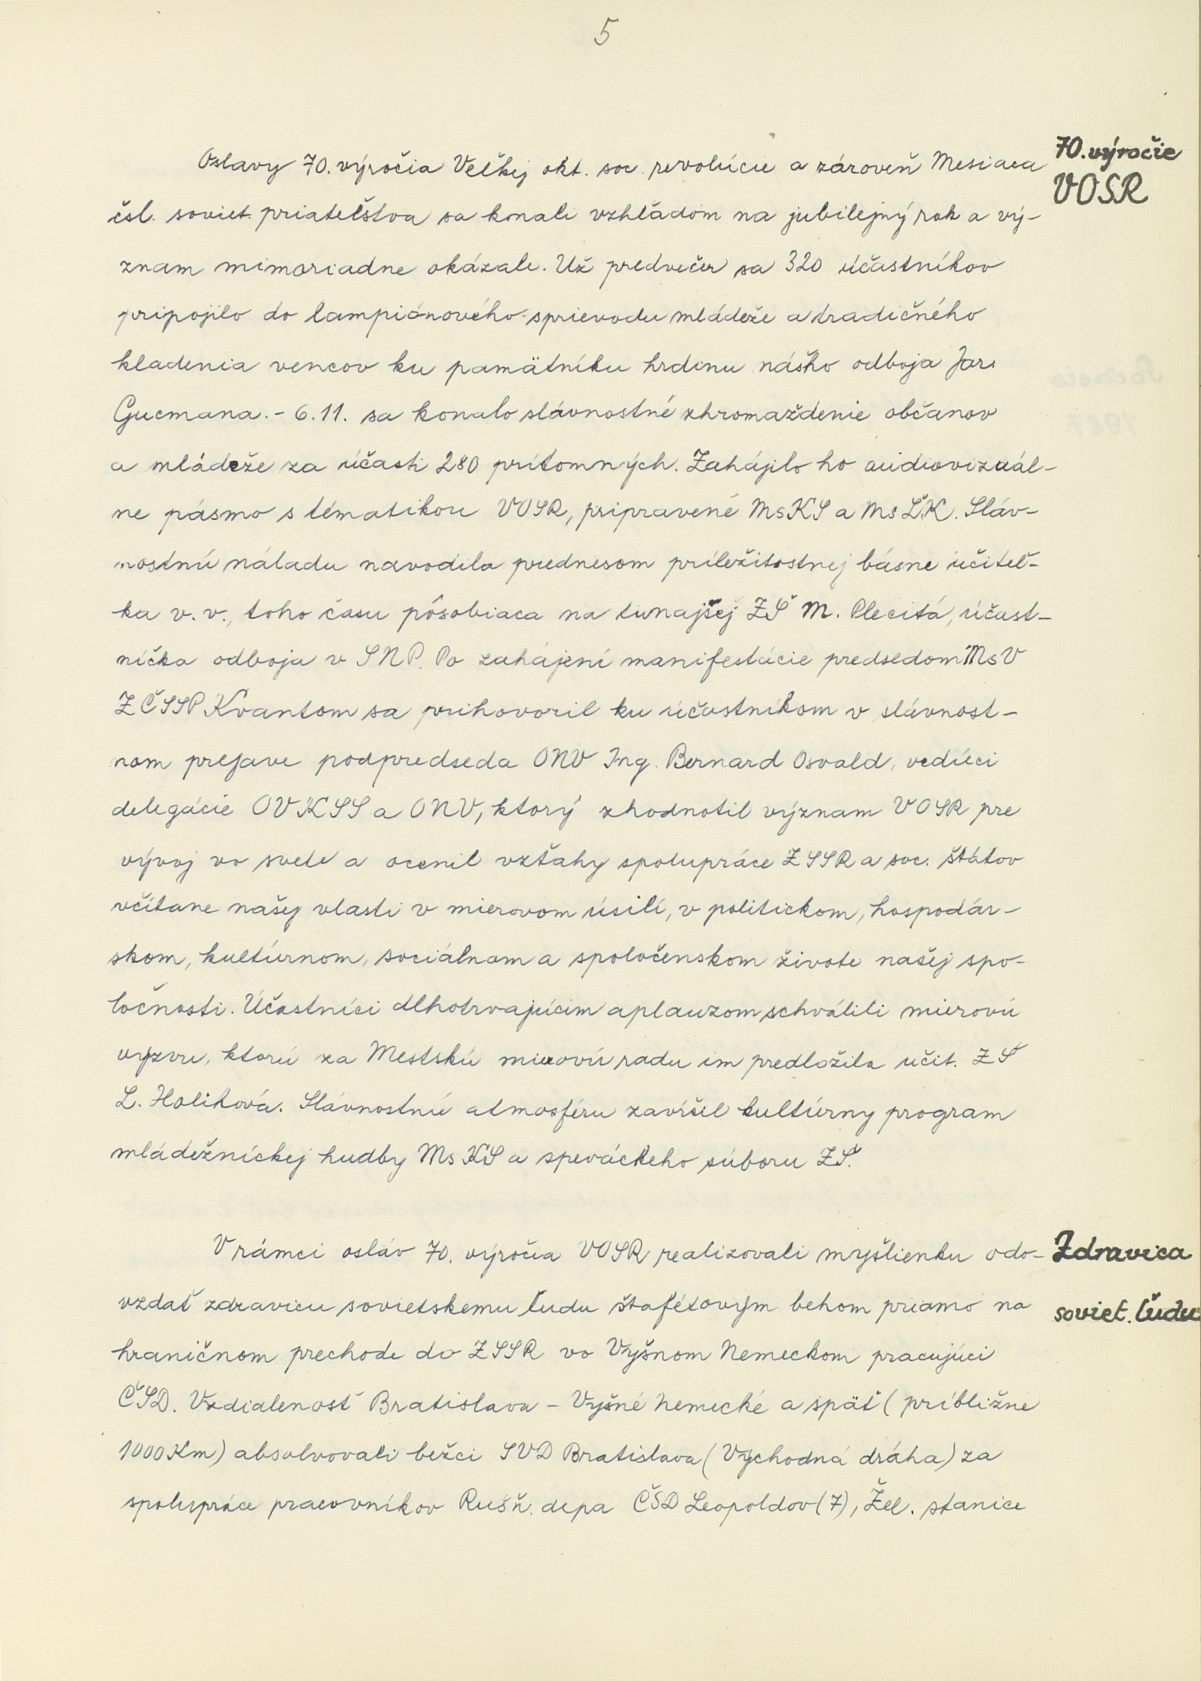 5
70. výročie
VOSR
Oslavy 70. výročia Veľkej okt. soc. revolúcie a zároveň Mesiaca
čsl. soviet. priateľstva sa konali vzhľadom na jubilejný rok a vý-
znam mimoriadne okázale. Už predvečer sa 320 účastníkov
pripojilo do lampiónového sprievodu mládeže a tradičného
kladenia vencov ku pamätníku hrdinu nášho odboja Jar.
Gucmana. - 6.11. sa konalo slávnostné zhromaždenie občanov
a mládeže za účasti 280 prítomných. Zahájilo ho audiovizuál-
ne pásmo s tématikou VOSR, pripravené MsKS a MsĽK. Sláv-
nostnú náladu navodila prednesom príležitostnej básne učiteľ-
ka v. v., toho času pôsobiaca na tunajšej ZŠ M. Plecitá, účast-
níčka odboja v SNP. Po zahájení manifestácie predsedom MsV
ZČSSP Kvantom sa prihovoril ku účastníkom v slávnost-
nom prejave podpredseda ONV Ing. Bernard Osvald, vedúci
delegácie OV KSS a ONV, ktorý zhodnotil význam VOSR pre
vývoj vo svete a ocenil vzťahy spolupráce ZSSR a soc. štátov
včítane našej vlasti v mierovom úsilí, v politickom, hospodár-
skom, kultúrnom, sociálnom a spoločenskom živote našej spo-
ločnosti. Účastníci dlhotrvajúcim aplauzom schválili mierovú
výzvu, ktorú za Mestskú mierovú radu im predložila učit. ZŠ
L. Holíková. Slávnostnú atmosféru zavŕšil kultúrny program
mládežníckej hudby MsKS a speváckeho súboru ZŠ.
Zdravica
soviet. ľudu
V rámci osláv 70. výročia VOSR realizovali myšlienku odo-
vzdať zdravicu sovietskemu ľudu štafétovým behom priamo na
hraničnom prechode do ZSSR vo Vyšnom Nemeckom pracujúci
ČSD. Vzdialenosť Bratislava - Vyšné Nemecké a späť (približne
1000 Km) absolvovali bežci SVD Bratislava (Východná dráha) za
spolupráce pracovníkov Rušň. depa ČSD Leopoldov (7), Žel. stanice